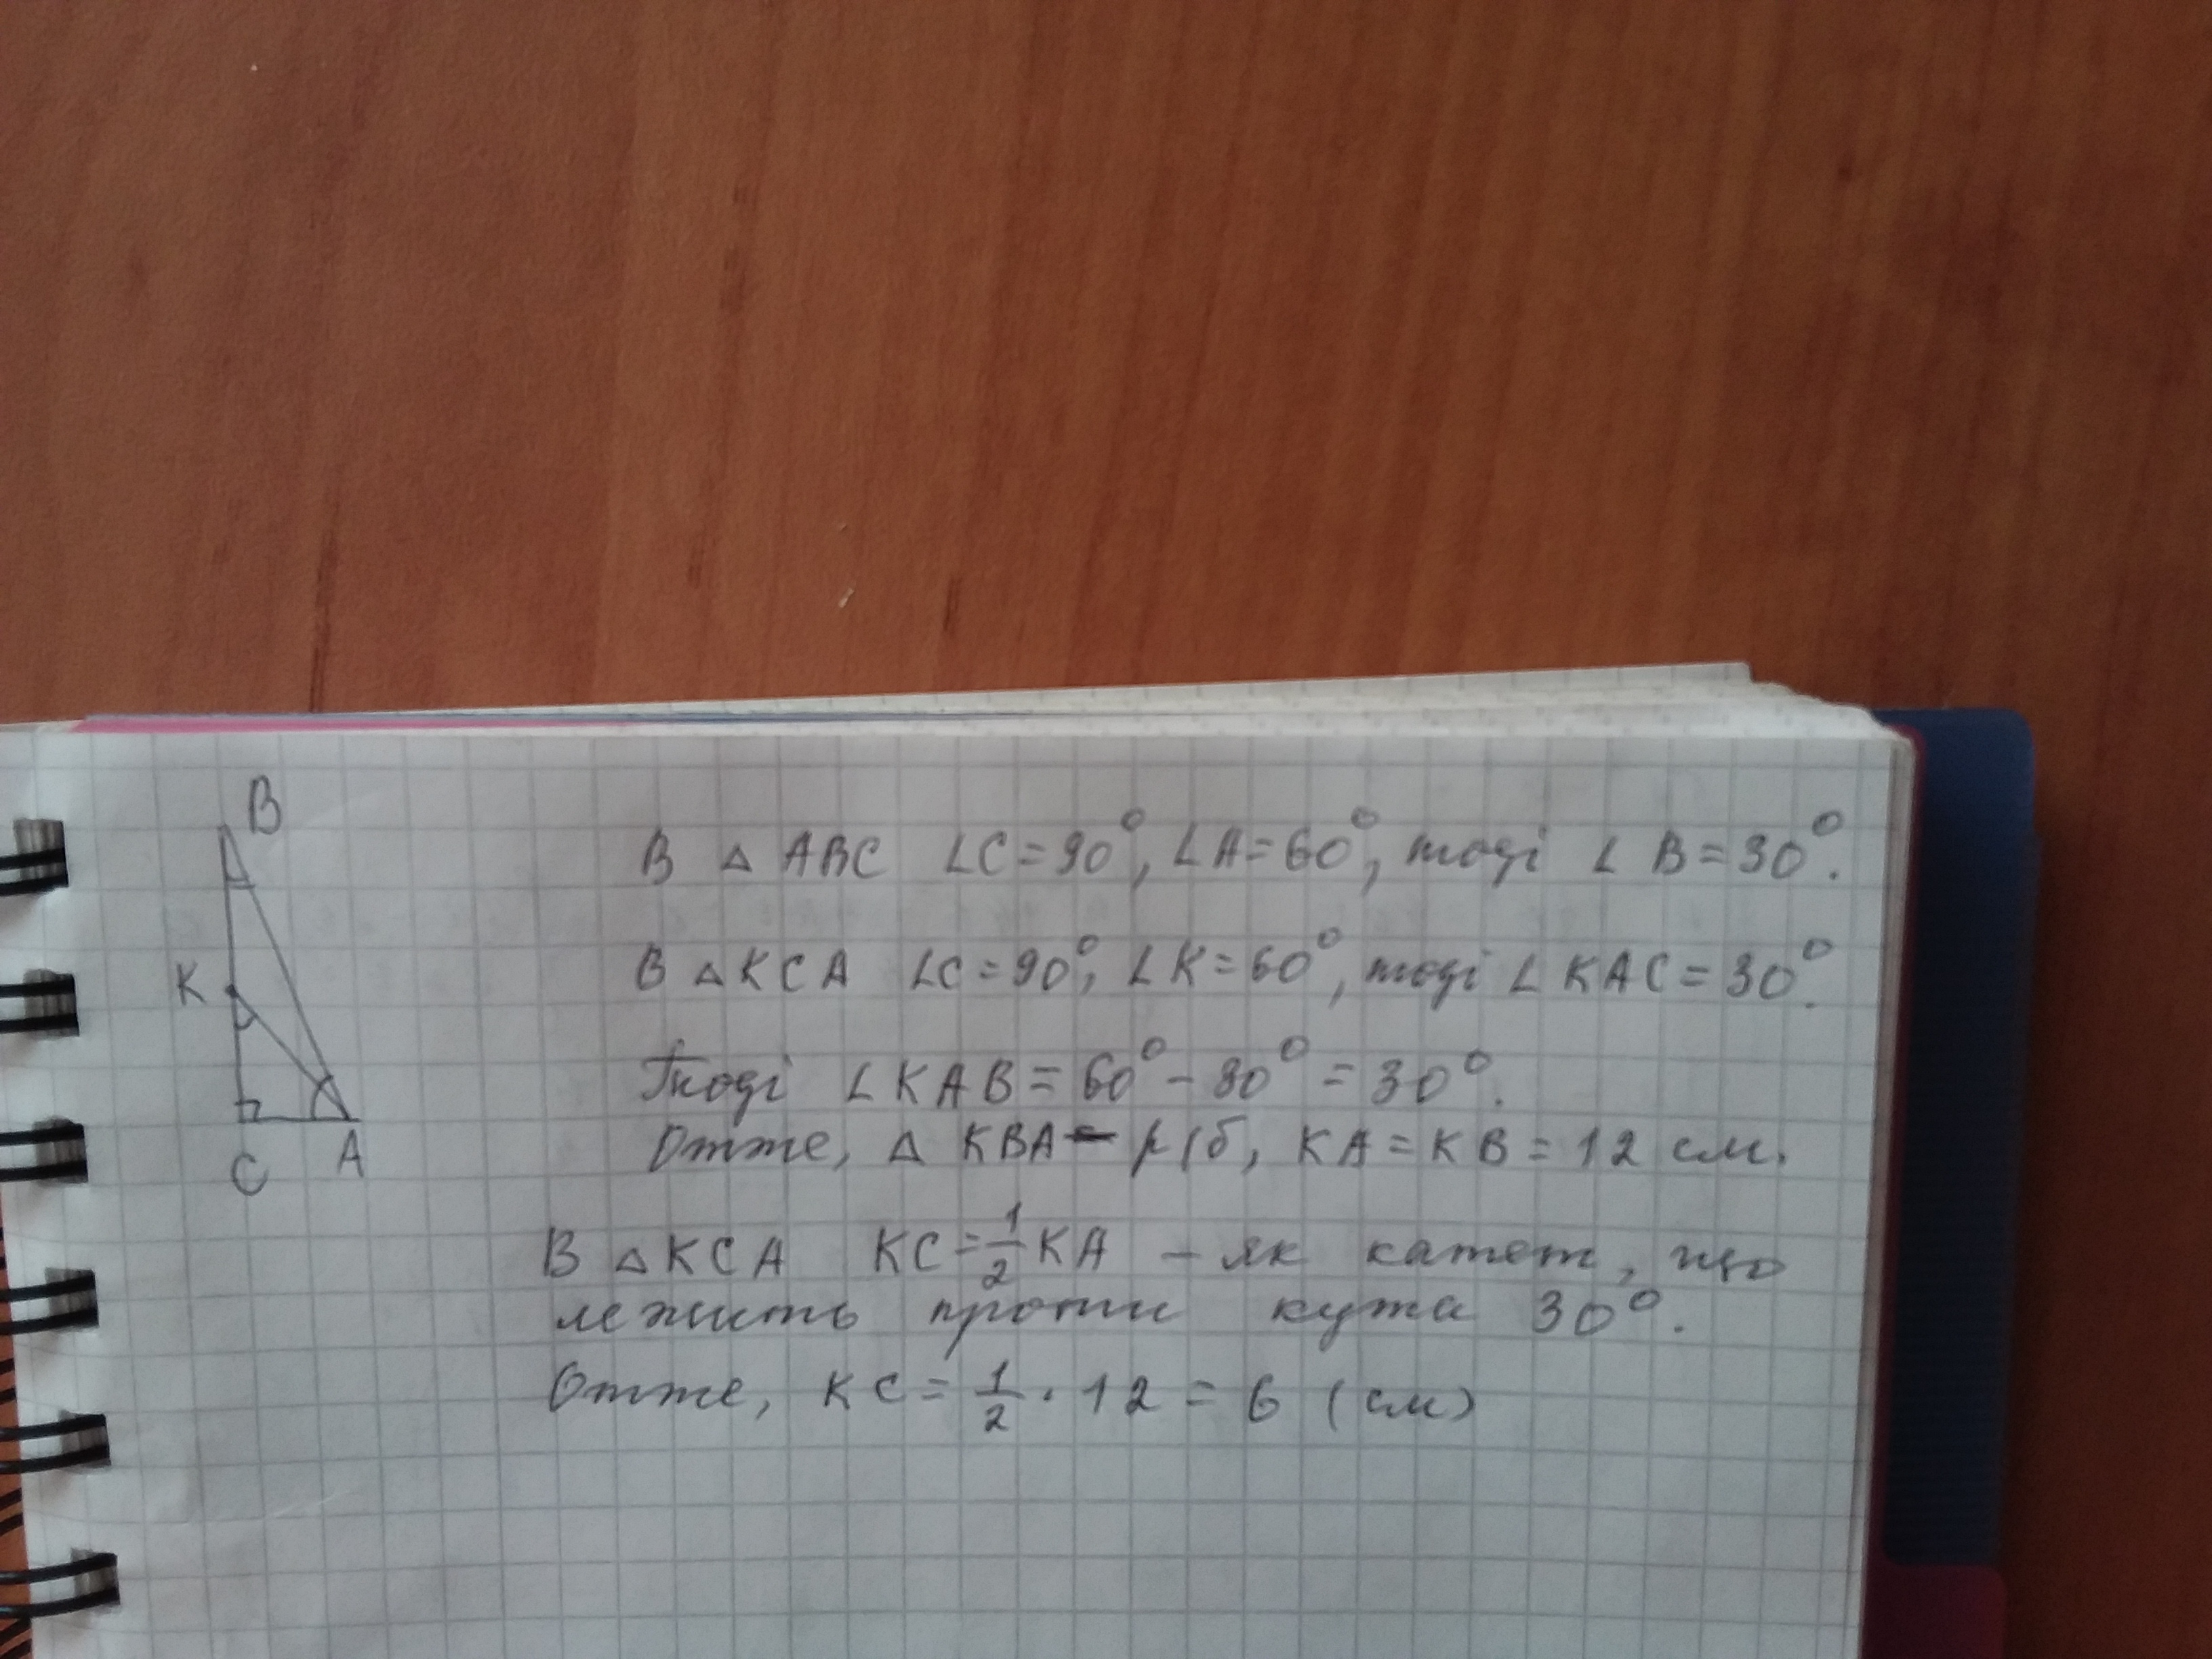 B
K
C
A
В △ ABC ∠C = 90°, ∠A = 60°, тоді ∠ B = 30°.
В △ KCA ∠C = 90°, ∠K = 60°, тоді ∠ KAC = 30°.
Тоді ∠KAB = 60° - 30° = 30°.
Отже, △ KBA - р/б, KA = KB = 12 см.
В △ KCA KC = 1/2 KA - як катет, що
лежить проти кута 30°.
Отже, KC = 1/2 · 12 = 6 (см)